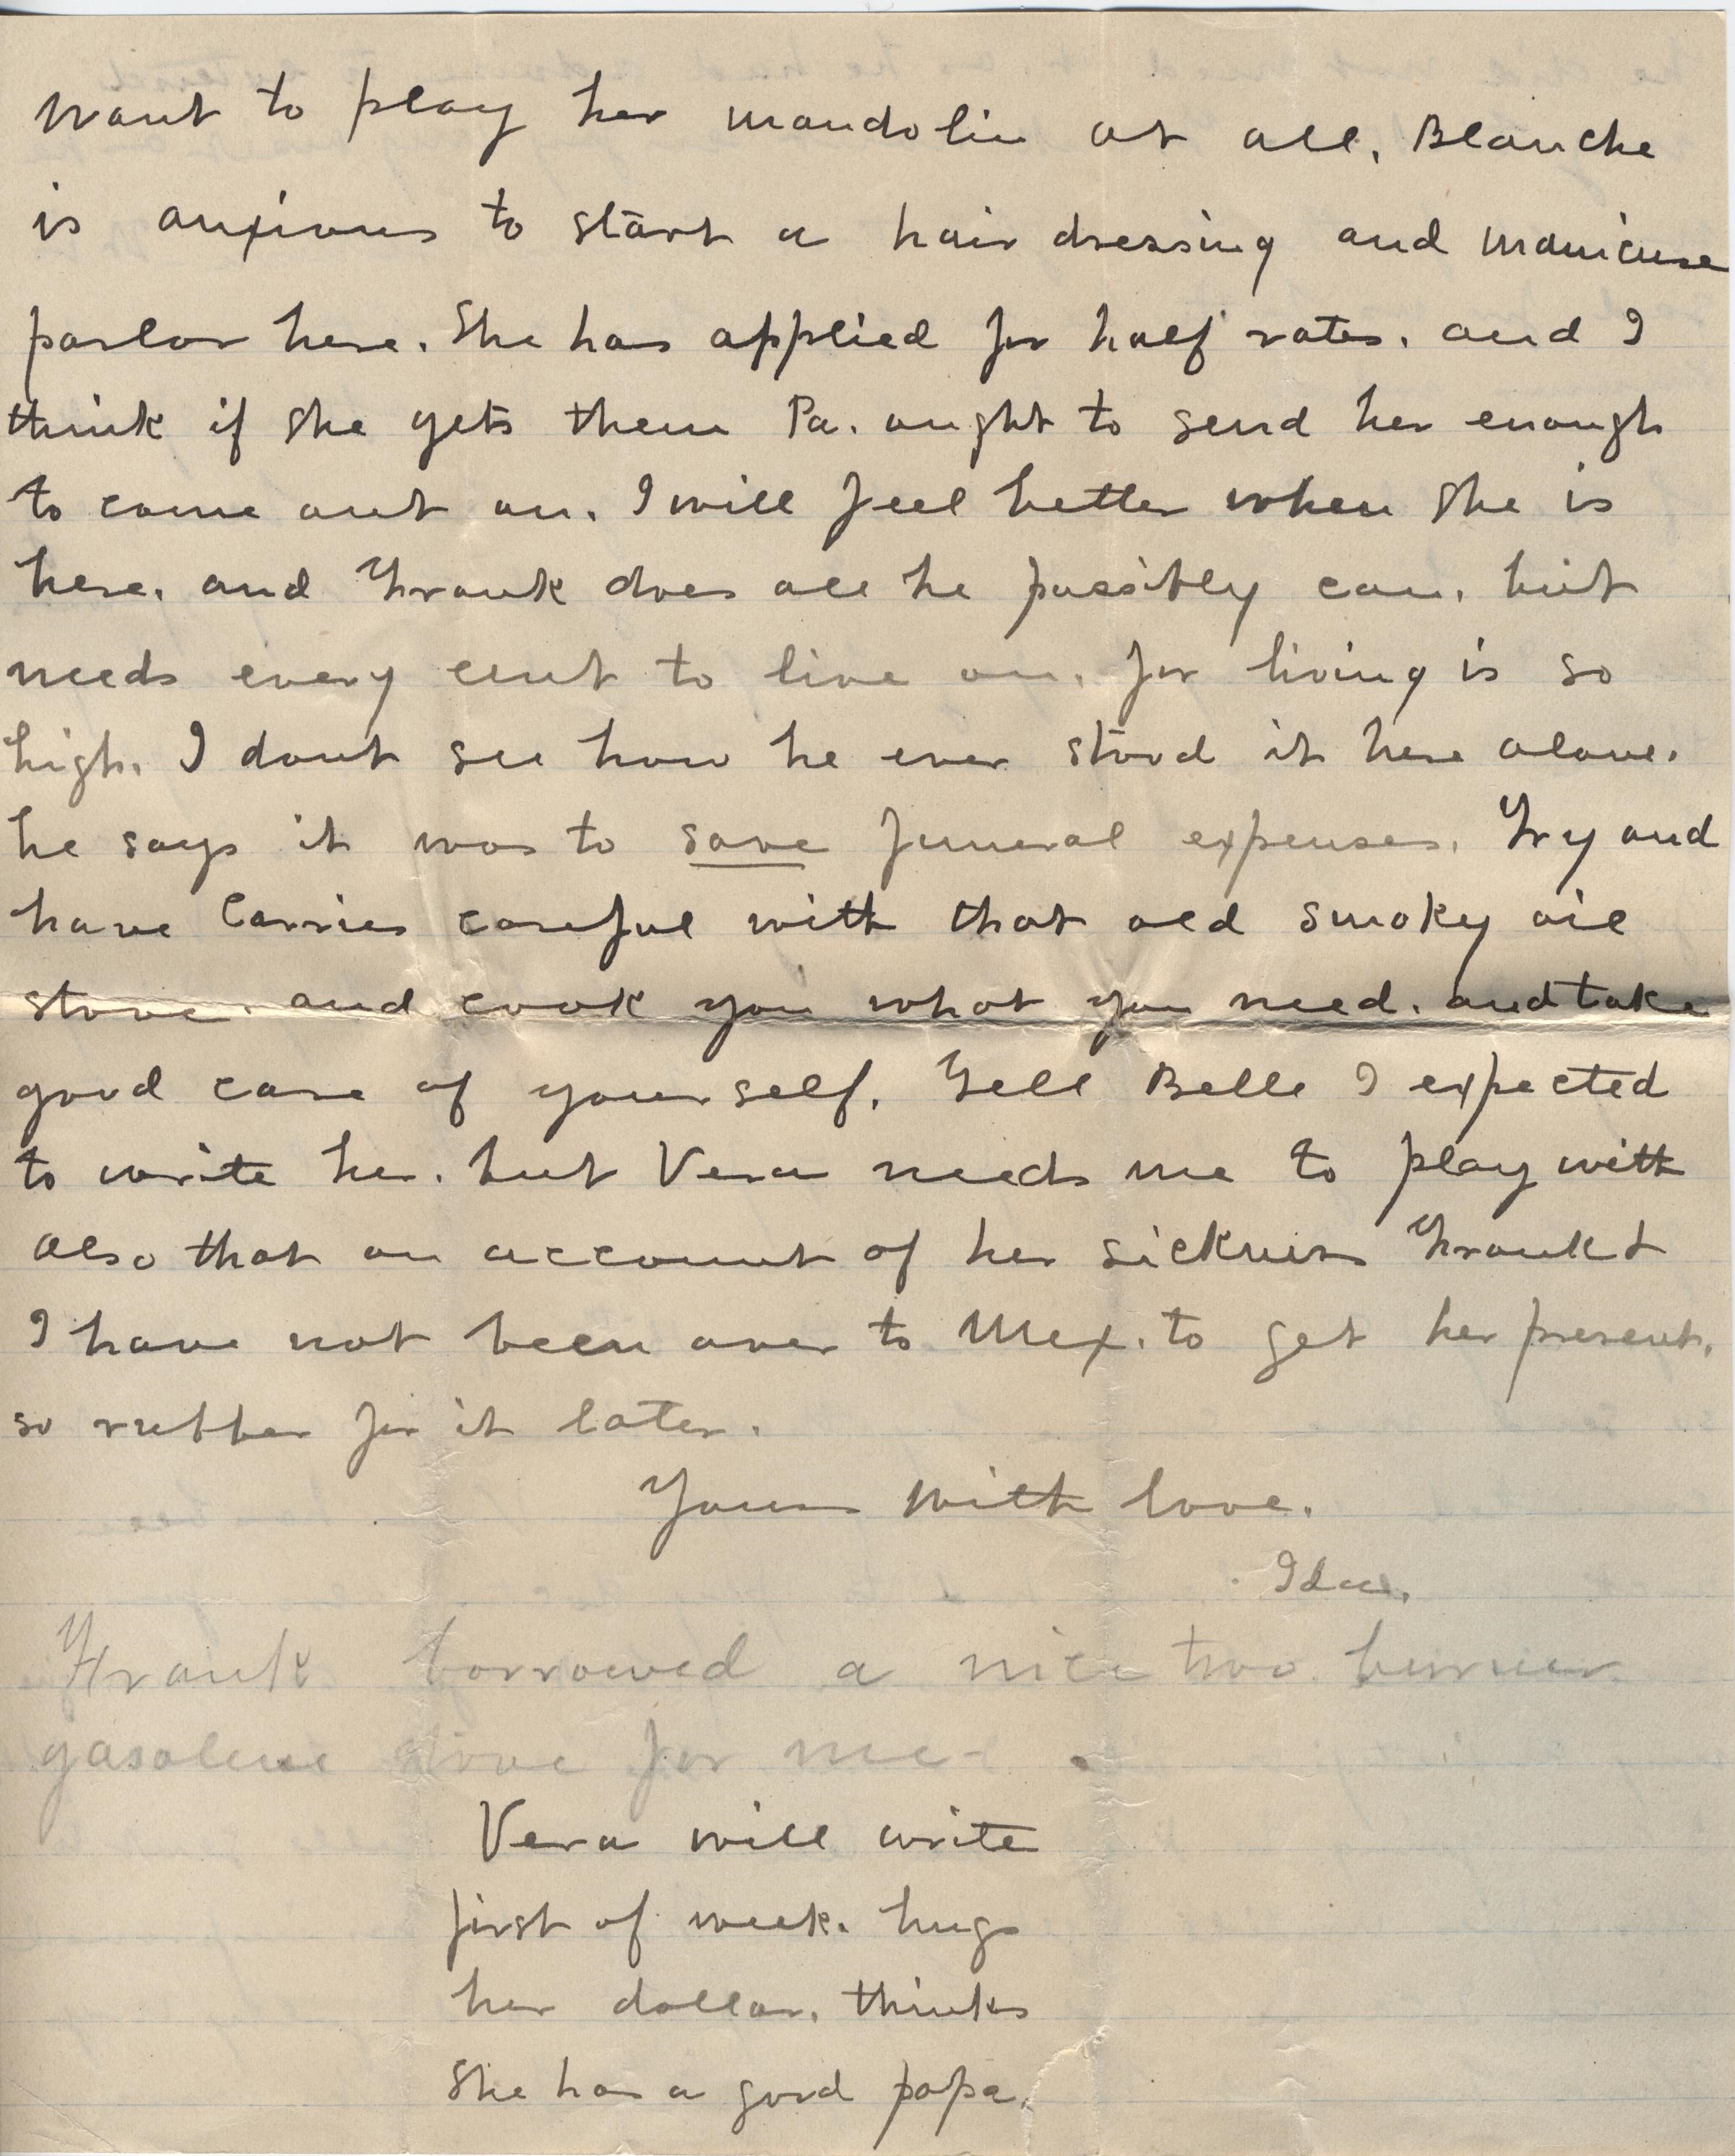 want to play her mandolin at all. Blanche
is anxious to start a hair dressing and manicure
parlor here. She has applied for half rates. and I
think if she gets them Pa. ought to send her enough
to come out on. I will feel better when she is
here. and Frank does all he possibly can. but
needs every cent to live on. for living is so
high. I dont see how he ever stood it here alone.
he says it was to save funeral expenses. Try and
have Carrie careful with that old smoky oil
stove. and cook you what you need. and take
good care of yourself. Tell Belle I expected
to write her. but Vera needs me to play with
also that on account of her sickness Frank &
I have not been over to Mex. to get her present.
so rubber for it later.
Yours with love.
Ida.
Frank borrowed a nice two burner
gasolene stove for me-
Vera will write
first of week. hugs
her dollar. thinks
she has a good papa.